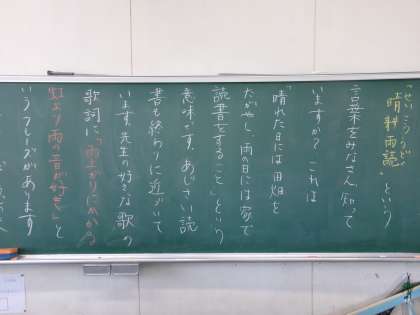 せいこううどく
「晴耕雨読」という
言葉をみなさん知って
いますか？これは
「晴れた日には田畑を
たがやし、雨の日には家で
読書をすること」という
意味です。あじさい読
書も終わりに近づいて
います。先生の好きな歌の
歌詞に「雨上がりにかかる
虹より雨の音が好き」と
いうフレーズがあります